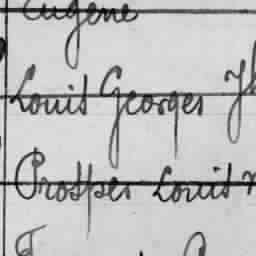 Eugène
Louis Georges
Prosper Louis